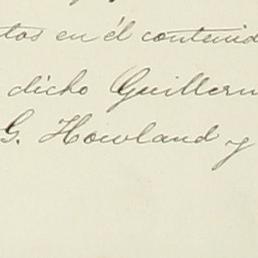 tos en él contenid
dicho Guillerm
G. Howland y